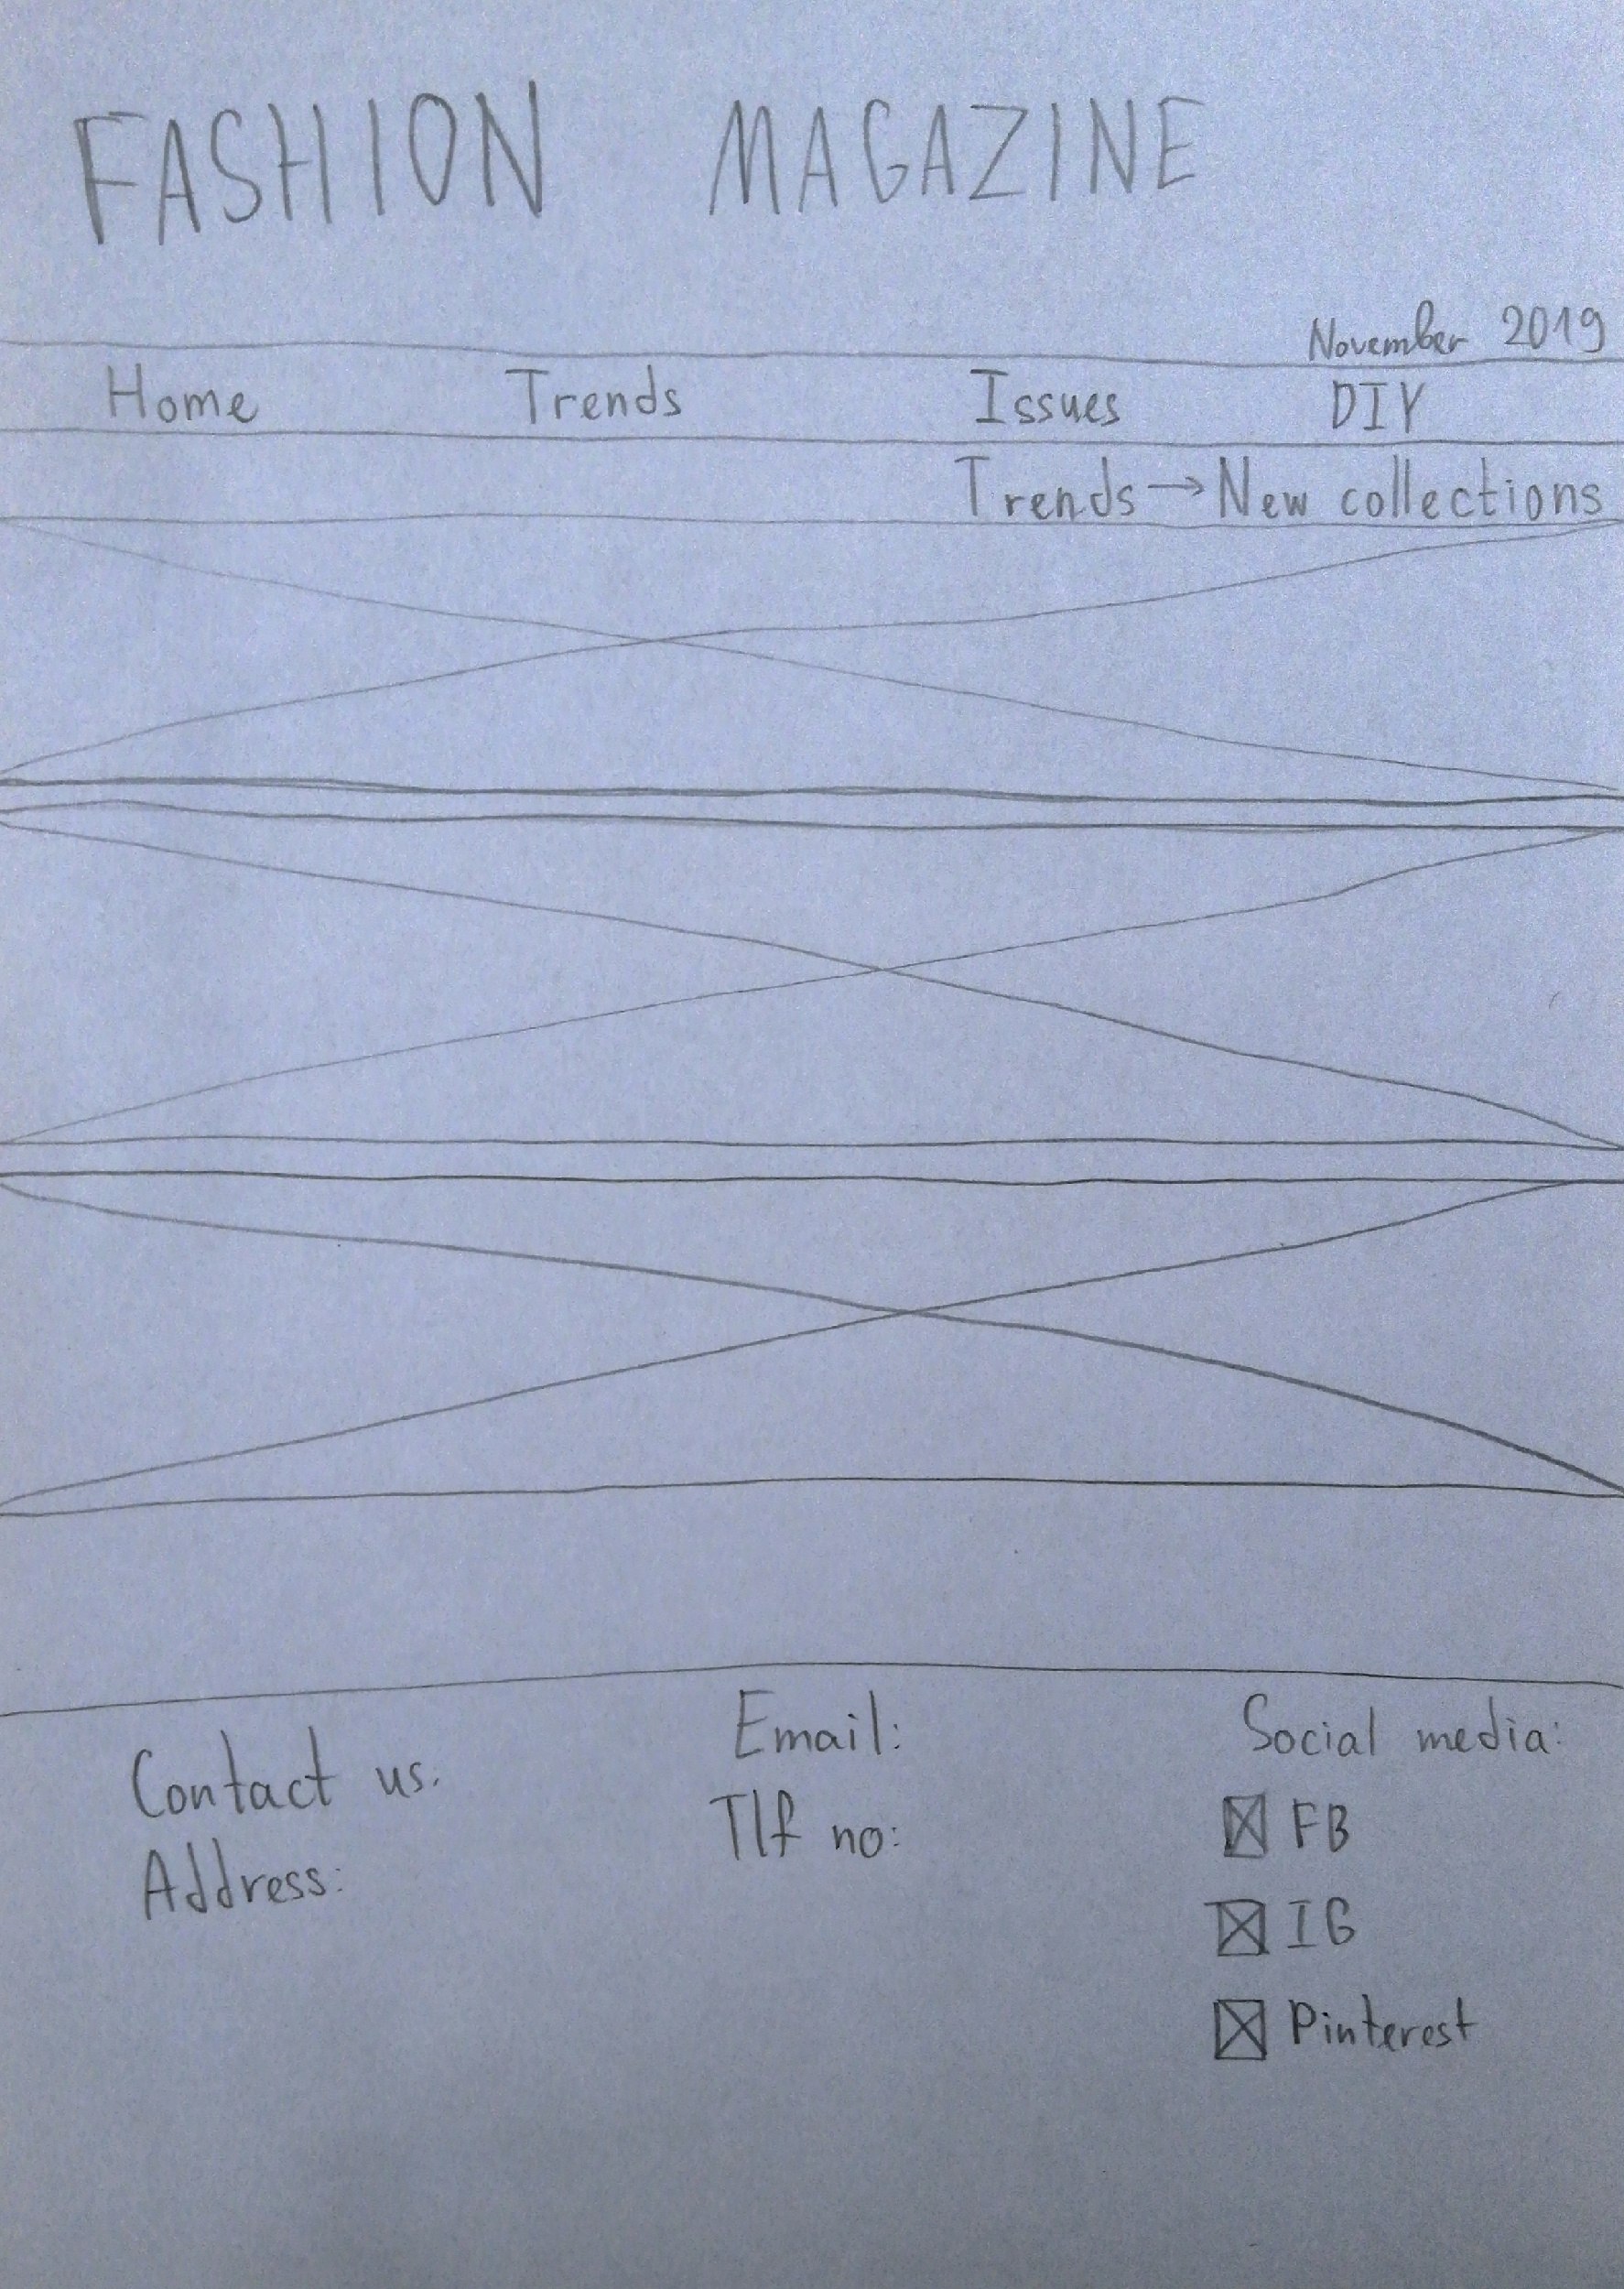 FASHION MAGAZINE
November 2019
Home Trends Issues DIY
Trends → New collections
Contact us.
Address:
Email:
Tlf no:
Social media:
FB
IG
Pinterest